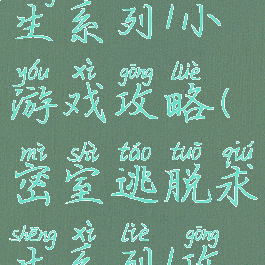 生系列1小
yóu xì gōng lüè
游戏攻略(
mì shì táo tuō qiú
密室逃脱求
shēng xì liè gōng
生系列1攻